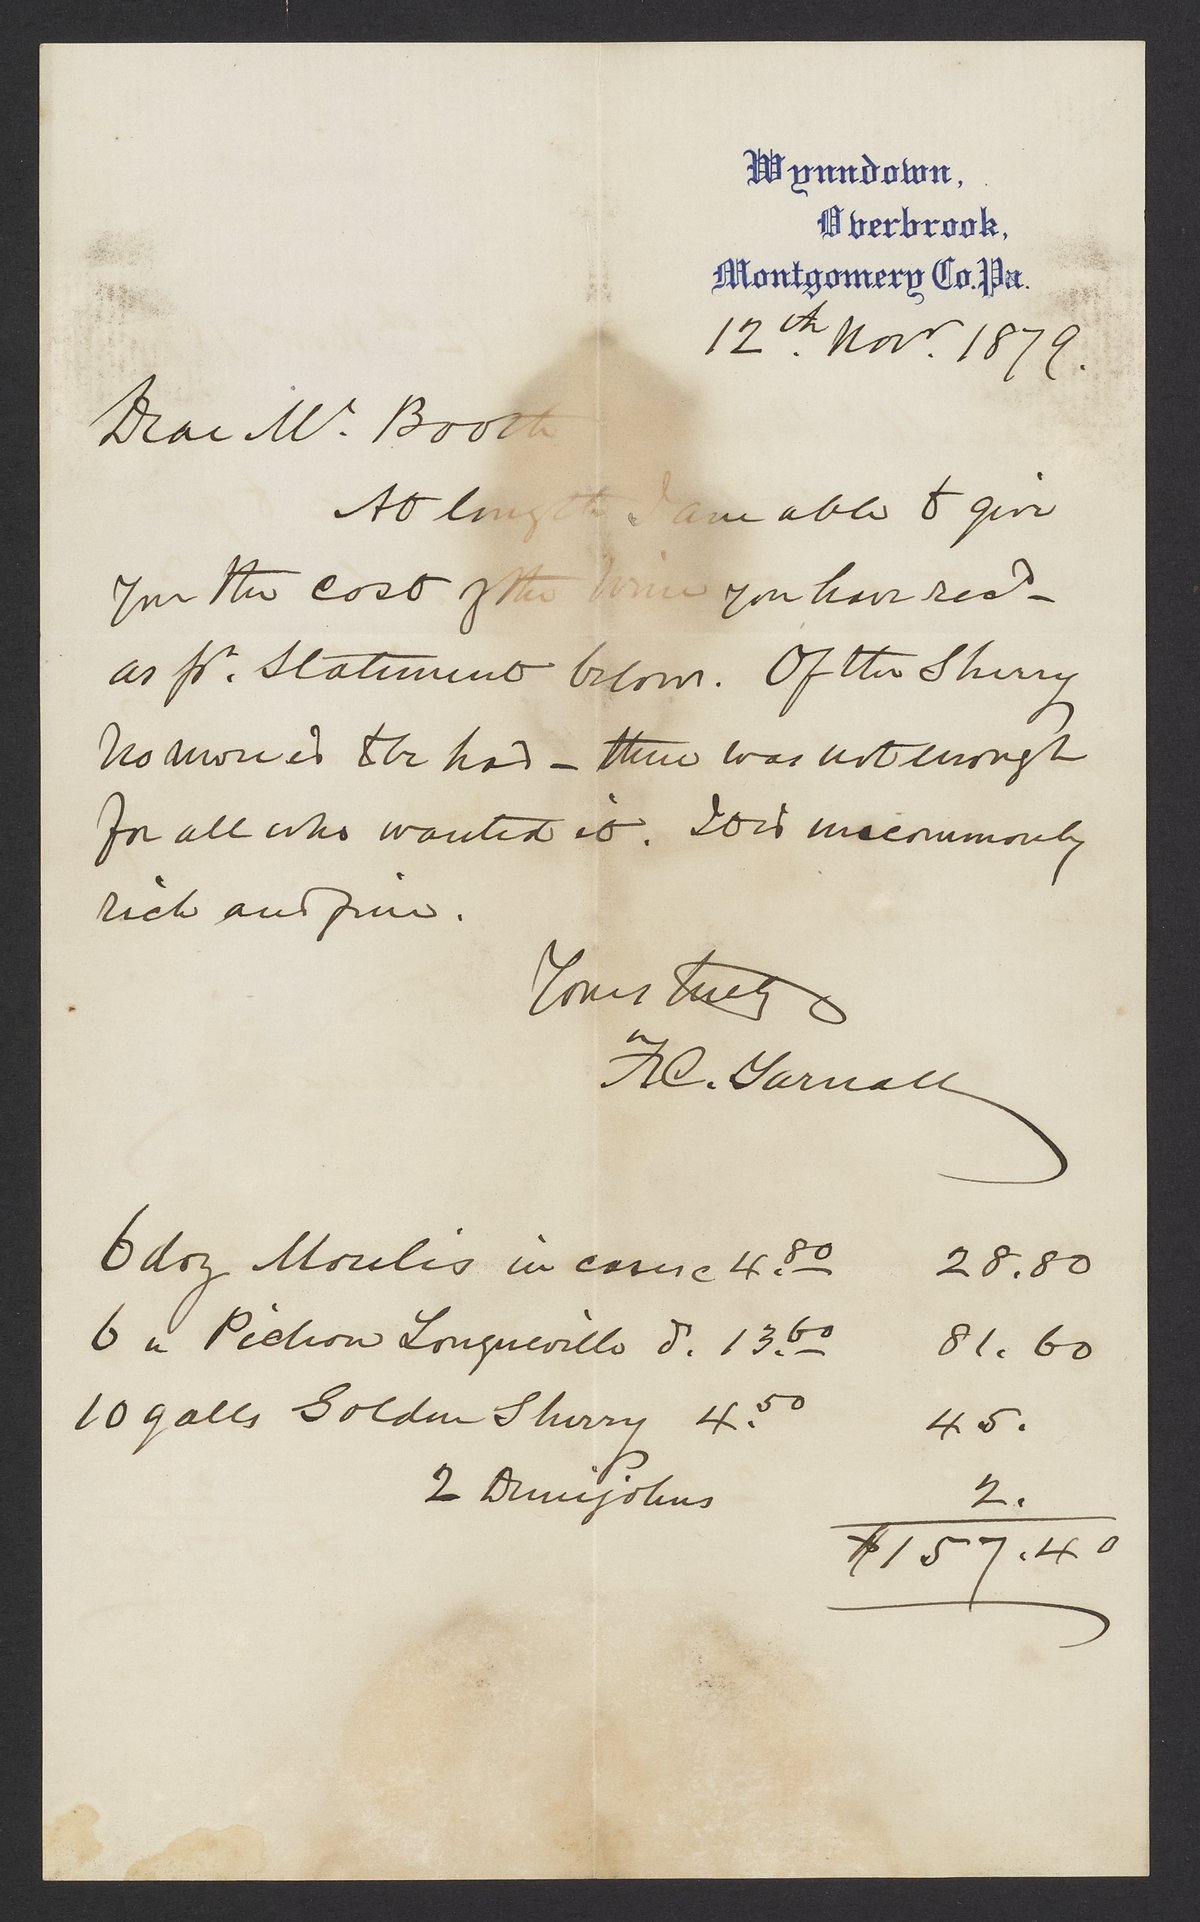 Wynndown,
Overbrook,
Montgomery Co. Pa.
12th. Novr. 1879.
Dear Mr. Booth
At length I am able to give
you the cost of the wine you have recd -
as pr. Statement below. Of the Sherry
no more is to be had - there was not enough
for all who wanted it. It is uncommonly
rich and fine.
Yours truly
F C. Yarnall
6 doz Moulis in case @ 4.80 28.80
6 " Pichon Longueville do. 13.60 81.60
10 galls Golden Sherry 4.50 45.
2 Demijohns 2.
$157.40